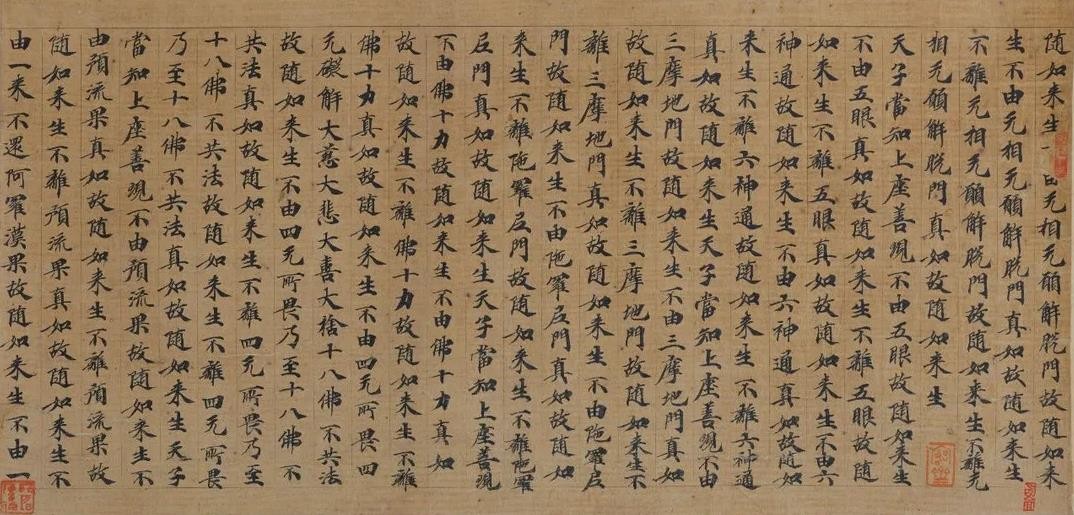 隨如来生无相无願解脫門故隨如来
生不由无相无願解脫門真如故隨如来生
不離无相无願解脫門故隨如来生不離无
相无願解脫門真如故隨如来生
天子當知上座善現不由五眼故隨如来生
不由五眼真如故隨如来生不離五眼故隨
如来生不離五眼真如故隨如来生不由六
神通故隨如来生不由六神通真如故隨如
来生不離六神通故隨如来生不離六神通
真如故隨如来生天子當知上座善現不由
三摩地門故隨如来生不由三摩地門真如
故隨如来生不離三摩地門故隨如来生不
離三摩地門真如故隨如来生不由陁羅尼
門故隨如来生不由陁羅尼門真如故隨如
来生不離陁羅尼門故隨如来生不離陁羅
尼門真如故隨如来生天子當知上座善現
不由佛十力故隨如来生不由佛十力真如
故隨如来生不離佛十力故隨如来生不離
佛十力真如故隨如来生不由四无所畏四
无礙解大慈大悲大喜大捨十八佛不共法
故隨如来生不由四无所畏乃至十八佛不
共法真如故隨如来生不離四无所畏乃至
十八佛不共法故隨如来生不離四无所畏
乃至十八佛不共法真如故隨如来生天子
當知上座善現不由預流果故隨如来生不
由預流果真如故隨如来生不離預流果故
隨如来生不離預流果真如故隨如来生不
由一来不還阿羅漢果故隨如来生不由一